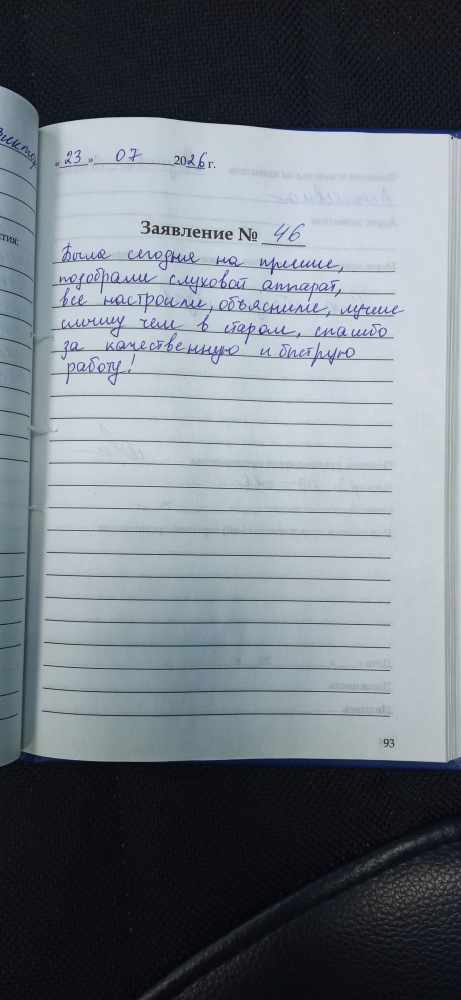 «23» 07 2026 г.
Заявление № 46
Была сегодня на приеме,
подобрали слуховой аппарат,
все настроили, объяснили, лучше
слышу чем в старом, спасибо
за качественную и быструю
работу!
93